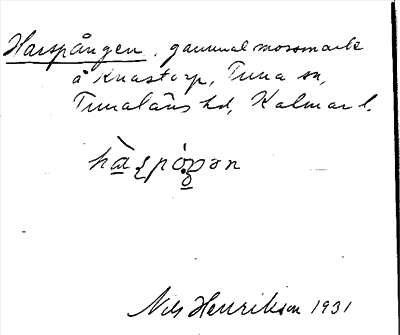 Harspången. gammal mossmark
å Knastorp, Tuna sn,
Tunaläns hd, Kalmar l.
Nils Henrikson 1931